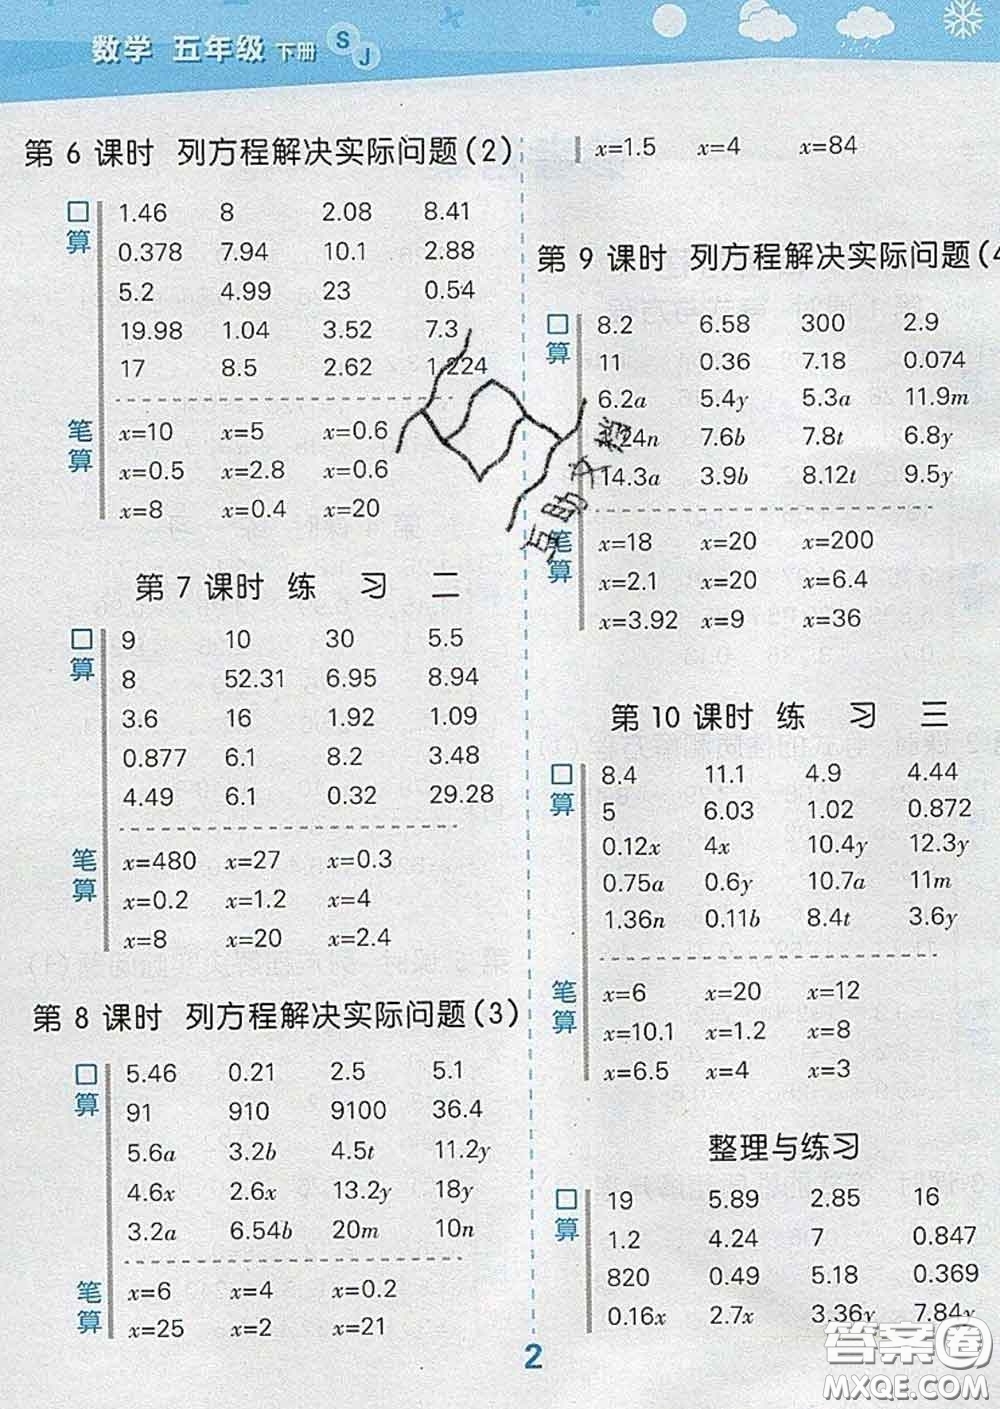 数学 五年级 下册 SJ
第 6 课时 列方程解决实际问题(2)
口算
1.46 8 2.08 8.41
0.378 7.94 10.1 2.88
5.2 4.99 23 0.54
19.98 1.04 3.52 7.3
17 8.5 2.62 1.224
笔算
x=10 x=5 x=0.6
x=0.5 x=2.8 x=0.6
x=8 x=0.4 x=20
第 7 课时 练 习 二
口算
9 10 30 5.5
8 52.31 6.95 8.94
3.6 16 1.92 1.09
0.877 6.1 8.2 3.48
4.49 6.1 0.32 29.28
笔算
x=480 x=27 x=0.3
x=0.2 x=1.2 x=4
x=8 x=20 x=2.4
第 8 课时 列方程解决实际问题(3)
口算
5.46 0.21 2.5 5.1
91 910 9100 36.4
5.6a 3.2b 4.5t 11.2y
4.6x 2.6x 13.2y 18y
3.2a 6.54b 20m 10n
笔算
x=6 x=4 x=0.2
x=25 x=2 x=21
x=1.5 x=4 x=84
第 9 课时 列方程解决实际问题(4
口算
8.2 6.58 300 2.9
11 0.36 7.18 0.074
6.2a 5.4y 5.3a 11.9m
24n 7.6b 7.8t 6.8y
14.3a 3.9b 8.12t 9.5y
笔算
x=18 x=20 x=200
x=2.1 x=20 x=6.4
x=3.92 x=9 x=36
第 10 课时 练 习 三
口算
8.4 11.1 4.9 4.44
5 6.03 1.02 0.872
0.12x 4x 10.4y 12.3y
0.75a 0.6y 10.7a 11m
1.36n 0.11b 8.4t 3.6y
笔算
x=6 x=20 x=12
x=10.1 x=1.2 x=8
x=6.5 x=4 x=3
整理与练习
口算
19 5.89 2.85 16
1.2 4.24 7 0.847
820 0.49 5.18 0.369
0.16x 2.7x 3.36y 7.84x
2
互助文档
答案圈
MXQE.COM